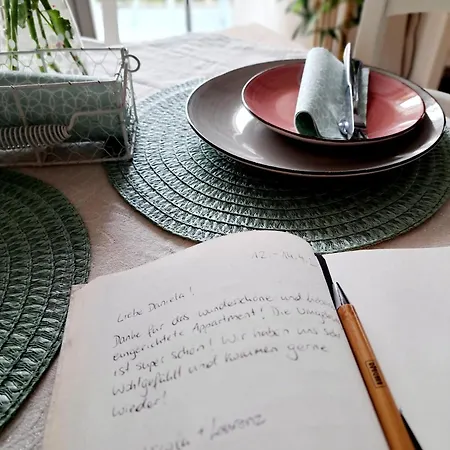 12. - 14.4.
Liebe Daniela!
Danke für das wunderschöne und
eingerichtete Appartment! Die
ist super schön! Wir haben uns
Wohlgefühlt und kommen gerne
wieder!
+ Lorenz